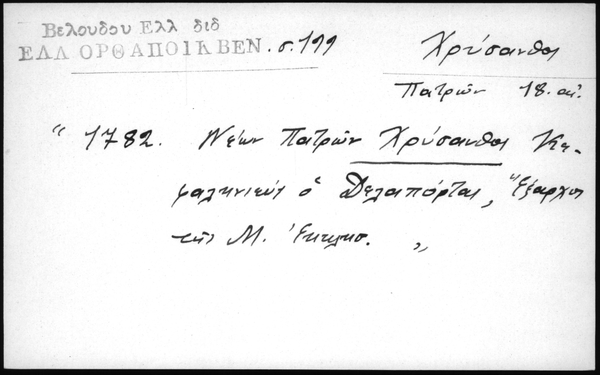 Βελουδου Ελλ διδ
ΕΛΛ ΟΡΘ ΑΠΟΙΚ ΒΕΝ. σ. 199
Χρύσανθος
Πατρῶν 18. αἰ.
" 1782. Νέων Πατρῶν Χρύσανθος Κε-
φαληνιεὺς ὁ Δελαπόρτας, Ἔξαρχος
τῆς Μ. Ἐκκλησ. "